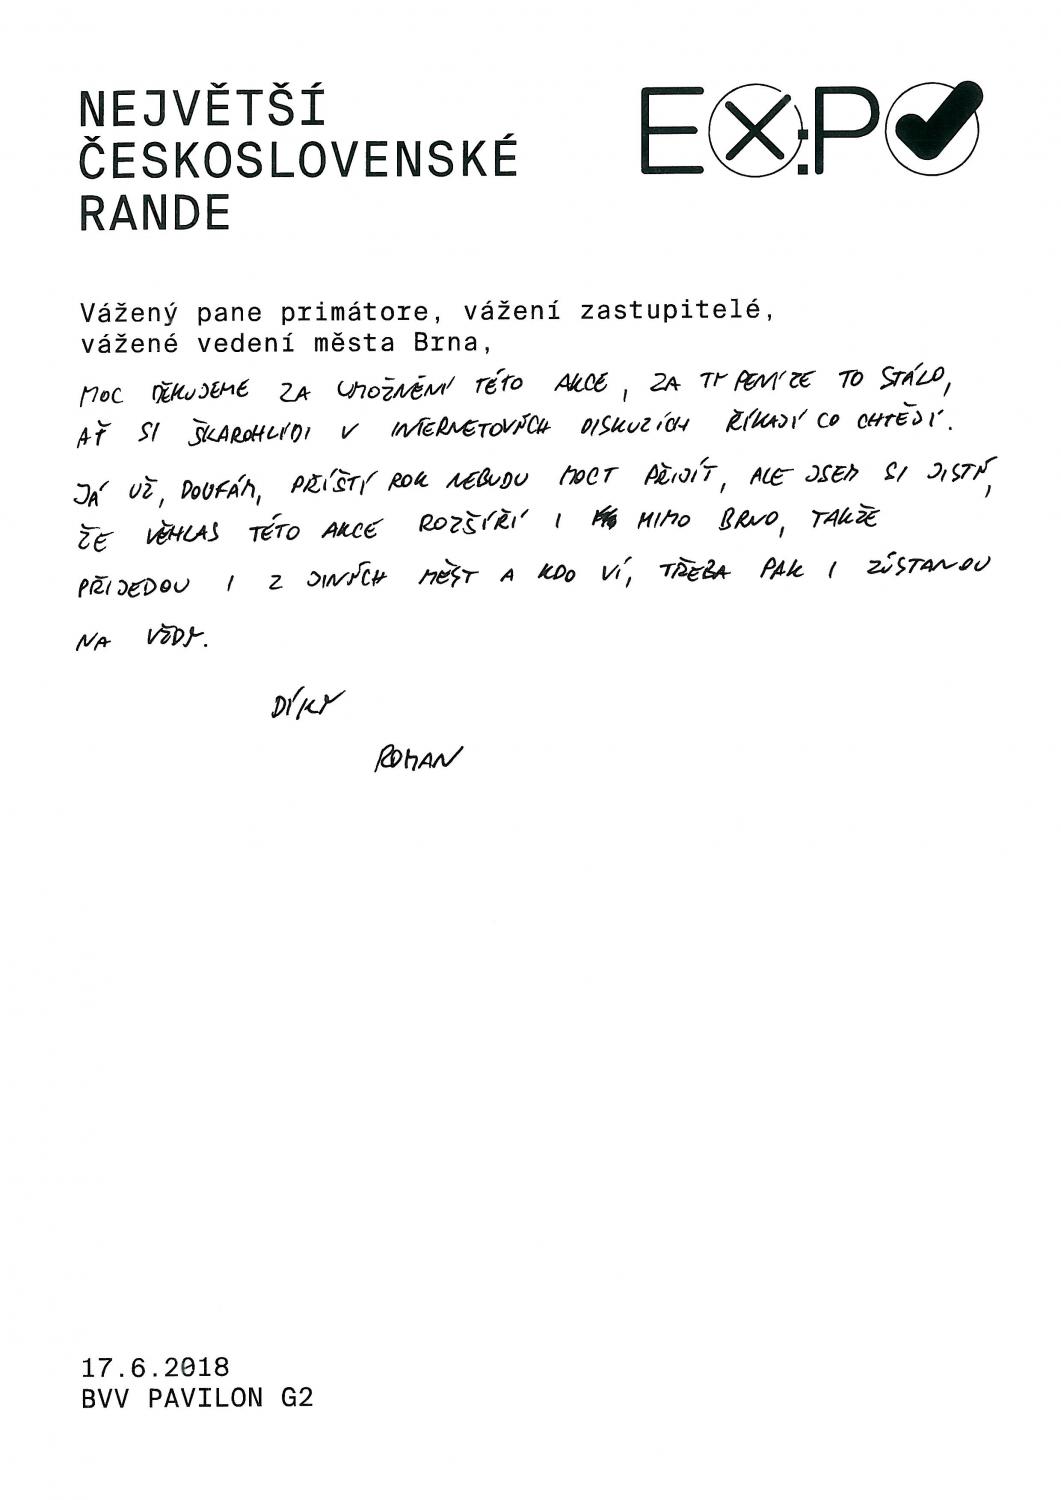 NEJVĚTŠÍ
ČESKOSLOVENSKÉ
RANDE
EX:PO
Vážený pane primátore, vážení zastupitelé,
vážené vedení města Brna,
MOC DĚKUJEME ZA UMOŽNĚNÍ TÉTO AKCE, ZA TY PENÍZE TO STÁLO,
AŤ SI ŠKAROHLÍDI V INTERNETOVÝCH DISKUZÍCH ŘÍKAJÍ CO CHTĚJÍ.
JÁ UŽ, DOUFÁM, PŘÍŠTÍ ROK NEBUDU MOCT PŘIJÍT, ALE JSEM SI JISTÝ,
ŽE VĚHLAS TÉTO AKCE ROZŠÍŘÍ I MIMO BRNO, TAKŽE
PŘIJEDOU I Z JINÝCH MĚST A KDO VÍ, TŘEBA PAK I ZŮSTANOU
NA VŽDY.
DÍKY
ROMAN
17.6.2018
BVV PAVILON G2